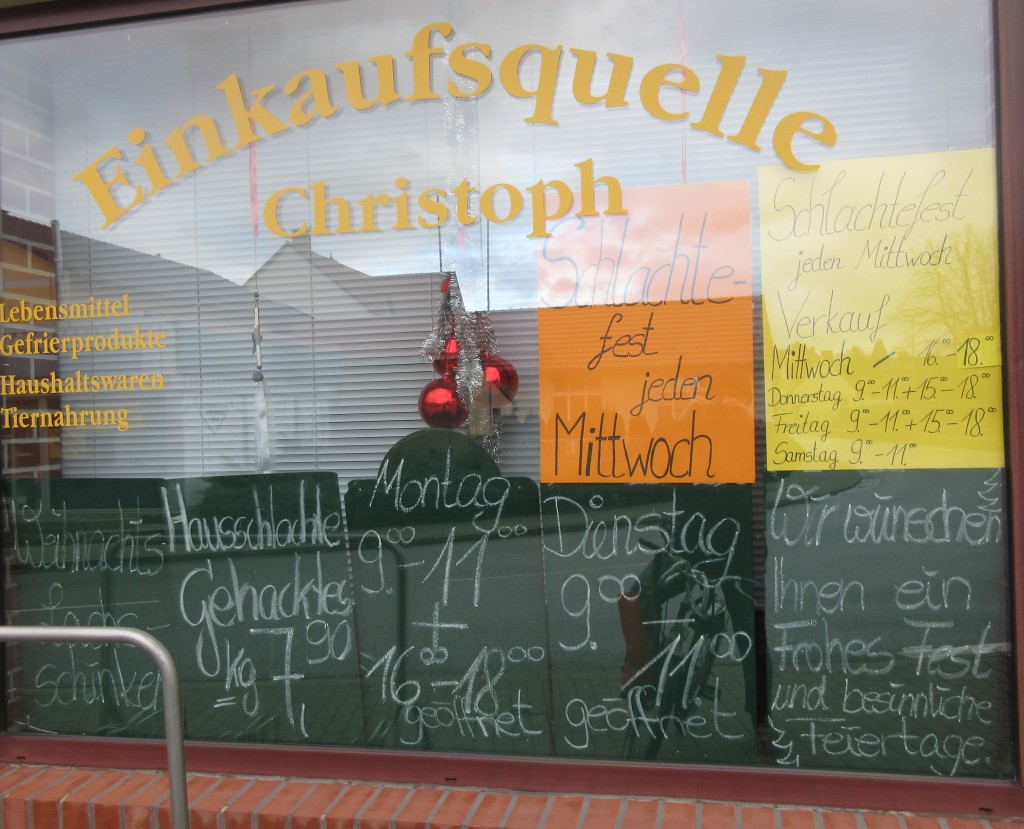 Einkaufsquelle
Christoph
Lebensmittel
Gefrierprodukte
Haushaltswaren
Tiernahrung
Schlachte-
fest
jeden
Mittwoch
Schlachtefest
jeden Mittwoch
Verkauf
Mittwoch 16.00-18.00
Donnerstag 9.00-11.00+15.00-18.00
Freitag 9.00-11.00+15.00-18.00
Samstag 9.00-11.00
Weihnachts
Lachs-
schinken
Hausschlachte
Gehacktes
kg 7,90
Montag
9.00-11.00
+
16.00-18.00
geöffnet
Dienstag
9.00-11.00
geöffnet
Wir wünschen
Ihnen ein
Frohes Fest
und besinnliche
Feiertage.